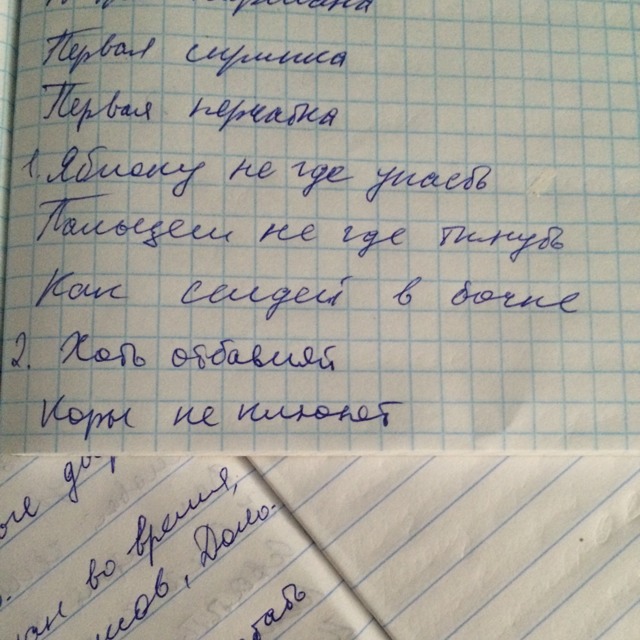 Первая скрипка
Первая перчатка
1. Яблоку не где упасть
Пальцем не где ткнуть
Как сельдей в бочке
2. Хоть отбавляй
Коры не клюют
во время,